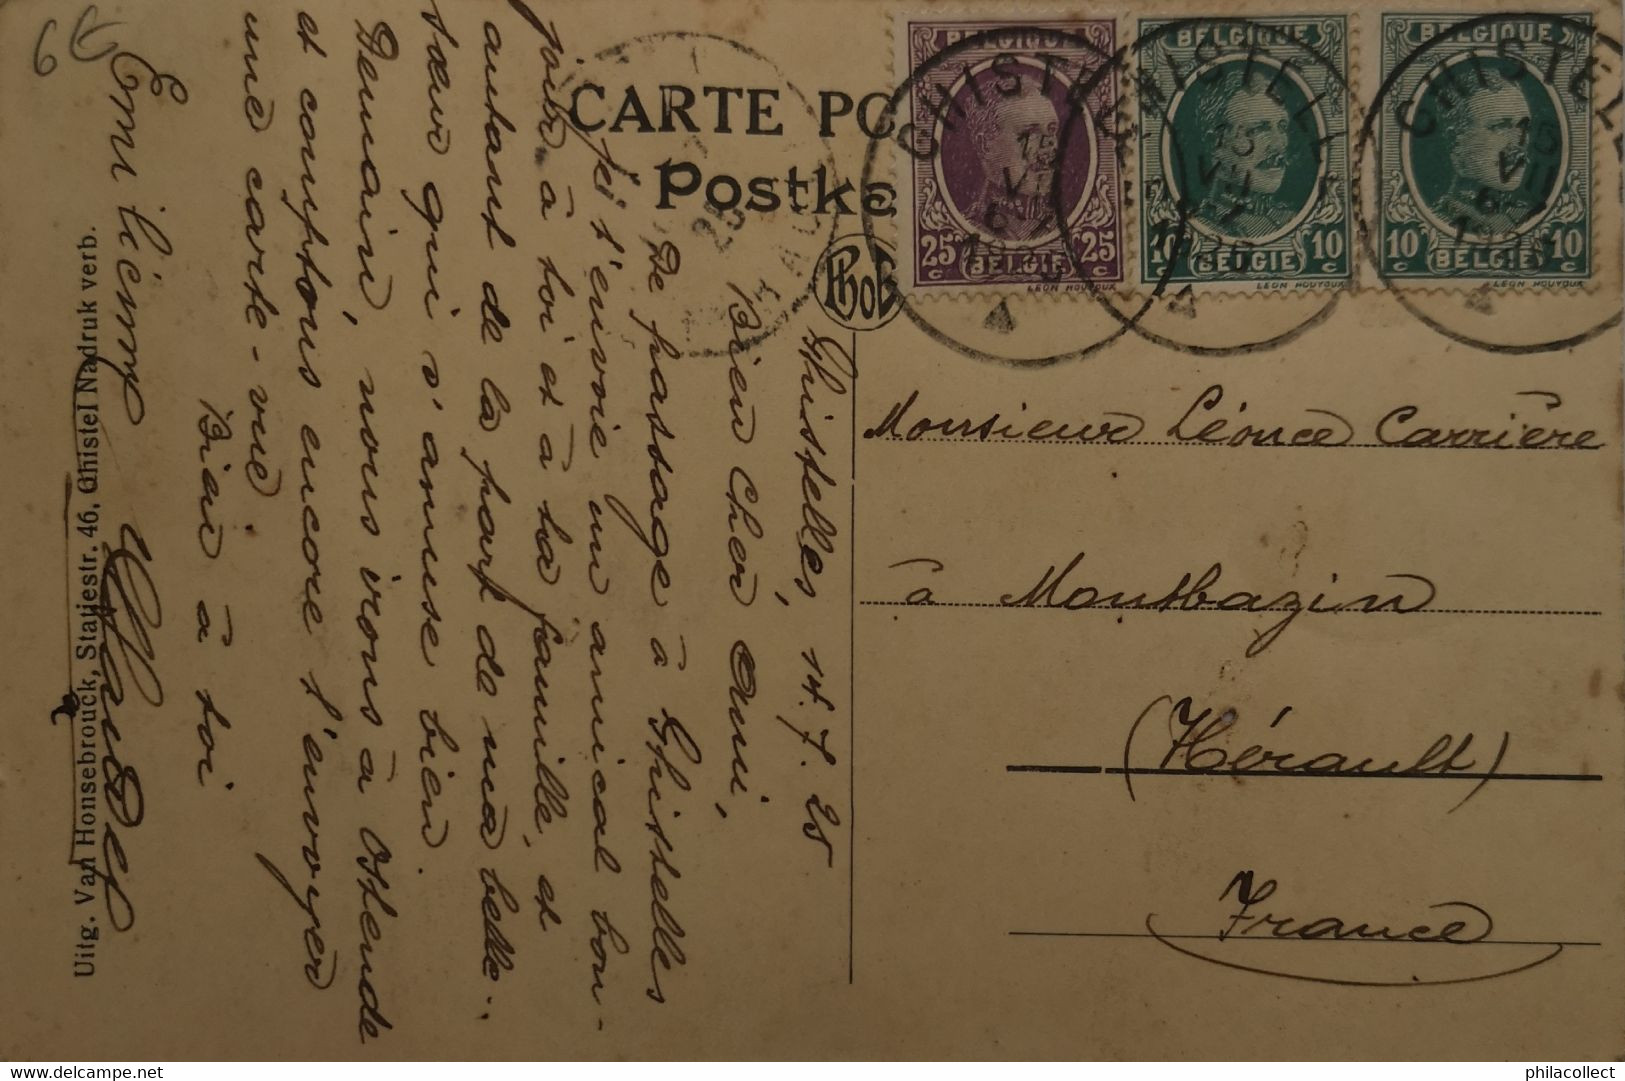 6€
CARTE PO
Postka
BELGIQUE
25 c 25 c
BELGIË
LEON HOUYOUX
BELGIQUE
10 c 10 c
BELGIË
LEON HOUYOUX
BELGIQUE
10 c 10 c
BELGIË
LEON HOUYOUX
GHISTELLE
15
VII
1925
Ghistelles, 14.7.25
Bien Cher Ami,
De passage à Ghistelles
je t'envoie un amical bon-
jour à toi et à ta famille, et
autant de la part de ma belle-
sœur qui s'amuse bien.
Demain, nous irons à Ostende
et comptons encore t'envoyer
une carte-vue
Bien à toi
Uitg. Van Honsebrouck, Statiestr. 46, Ghistel Nadruk verb.
Monsieur Léonce Carrière
à Montbazin
(Hérault)
France
philacollect